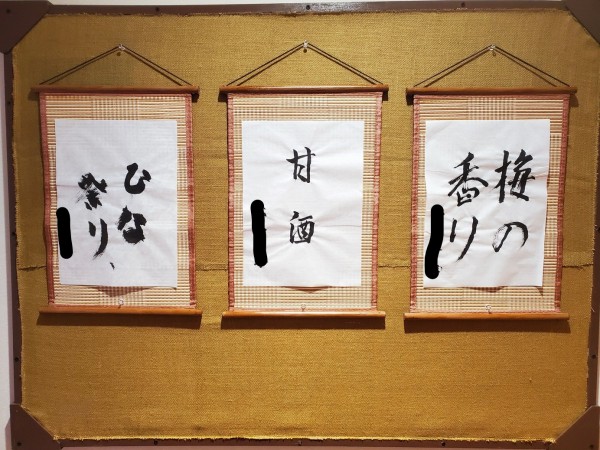 梅の
香り
甘酒
ひな
祭り